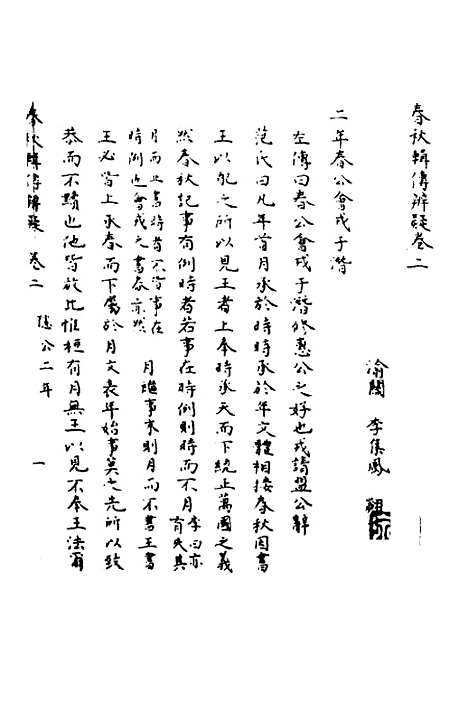 春秋輯傳辨疑卷二
渝關 李集鳳 翽
二年春公會戎于潛
左傳曰春公會戎于潛修惠公之好也戎請盟公辭
范氏曰凡年首月承於時時承於年文體相接春秋因書
王以配之所以見王者上奉時承天而下統正萬國之義
然春秋記事有例時者若事在時例則時而不月李曰亦有失其
月而止書時者不皆事在時例也會戎之書春亦然 月繼事末則月而不書王書
王必皆上承春而下屬於月文表年始事莫之先所以致
恭而不黷也他皆放此惟桓有月無王以見不奉王法爾
春秋輯傳辨疑 卷二 隱公二年 一